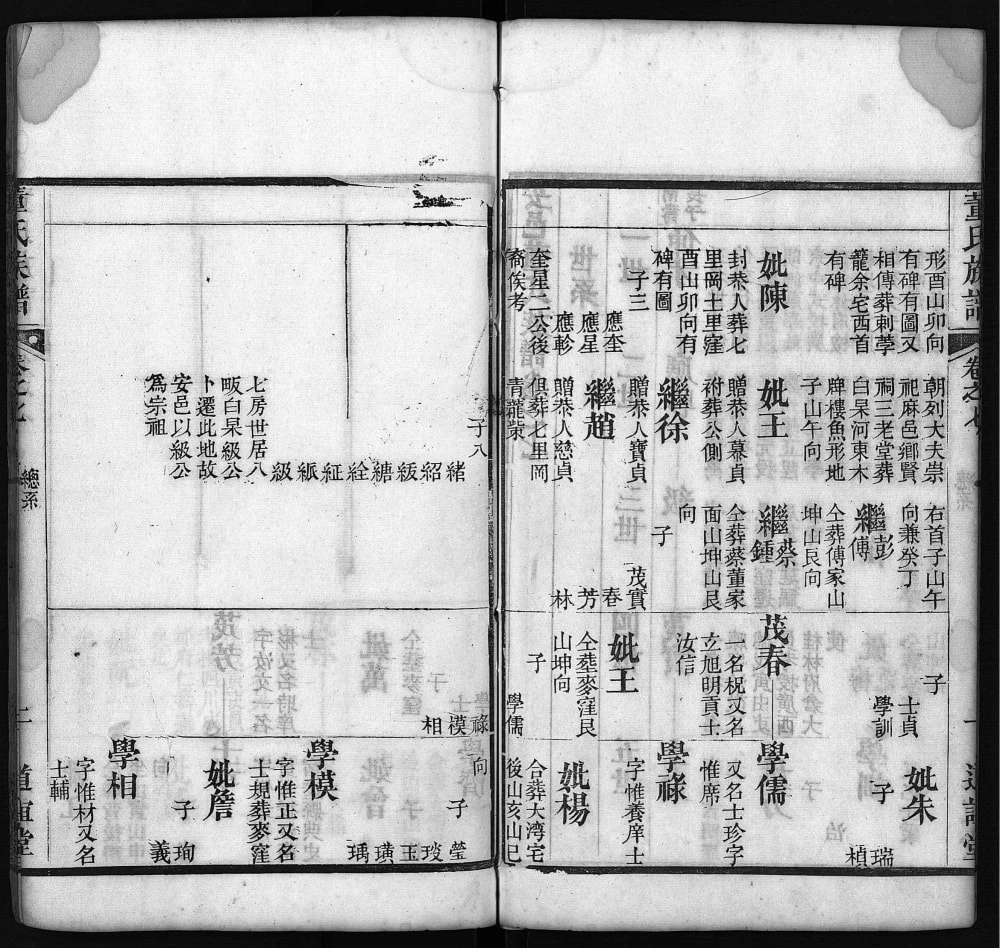 董氏族譜
卷之七
形酉山卯向
有碑有圖又
相傳葬刺葶
籠余宅西首
有碑
妣陳
封恭人葬七
里岡土里窪
酉山卯向有
碑有圖
子三
應奎
應星
應軫
奎星二公後
裔俟考
朝列大夫崇
祀麻邑鄉賢
祠三老堂葬
白杲河東木
牌樓魚形地
子山午向
妣王
贈恭人慕貞
祔葬公側
繼徐
贈恭人寶貞
繼趙
贈恭人慈貞
但葬七里岡
青龍嘴
右首子山午
向兼癸丁
繼彭
傅
仝葬傅家山
坤山艮向
繼蔡
鍾
仝葬蔡董家
面山坤山艮
向
子
茂實
春
芳
林
子
士貞
學訓
茂春
一名柷又名
立旭明貢士
汝信
妣王
仝塟麥窪艮
山坤向
子
學儒
妣朱
子
瑞
楨
學儒
又名士珍字
惟席
學祿
字惟養庠士
妣楊
合葬大湾宅
後山亥山巳
子八
緒
紹
䋈
糖
絟
紅
紙
級
七房世居八
畈白杲級公
卜遷此地故
安邑以級公
為宗祖
學祿
士模
相
向
子
瑩
琰
玉
璜
瑀
學模
字惟正又名
士規葬麥窪
妣詹
子
珣
義
學相
字惟材又名
士輔
董氏族譜
卷之七
總系
二
道直堂